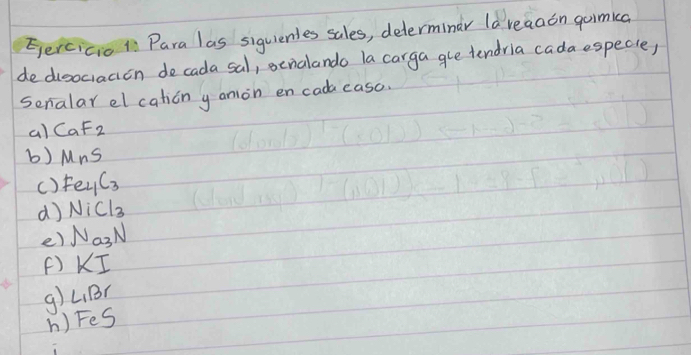 Ejercicio 1: Para las siguientes sales, determinar la reacción química
de disociación de cada sal, señalando la carga que tendría cada especie,
señalar el catión y anión en cada caso.
a) CaF2
b) MnS
c) Fe4C3
d) NiCl3
e) Na3N
f) KI
g) LiBr
h) FeS